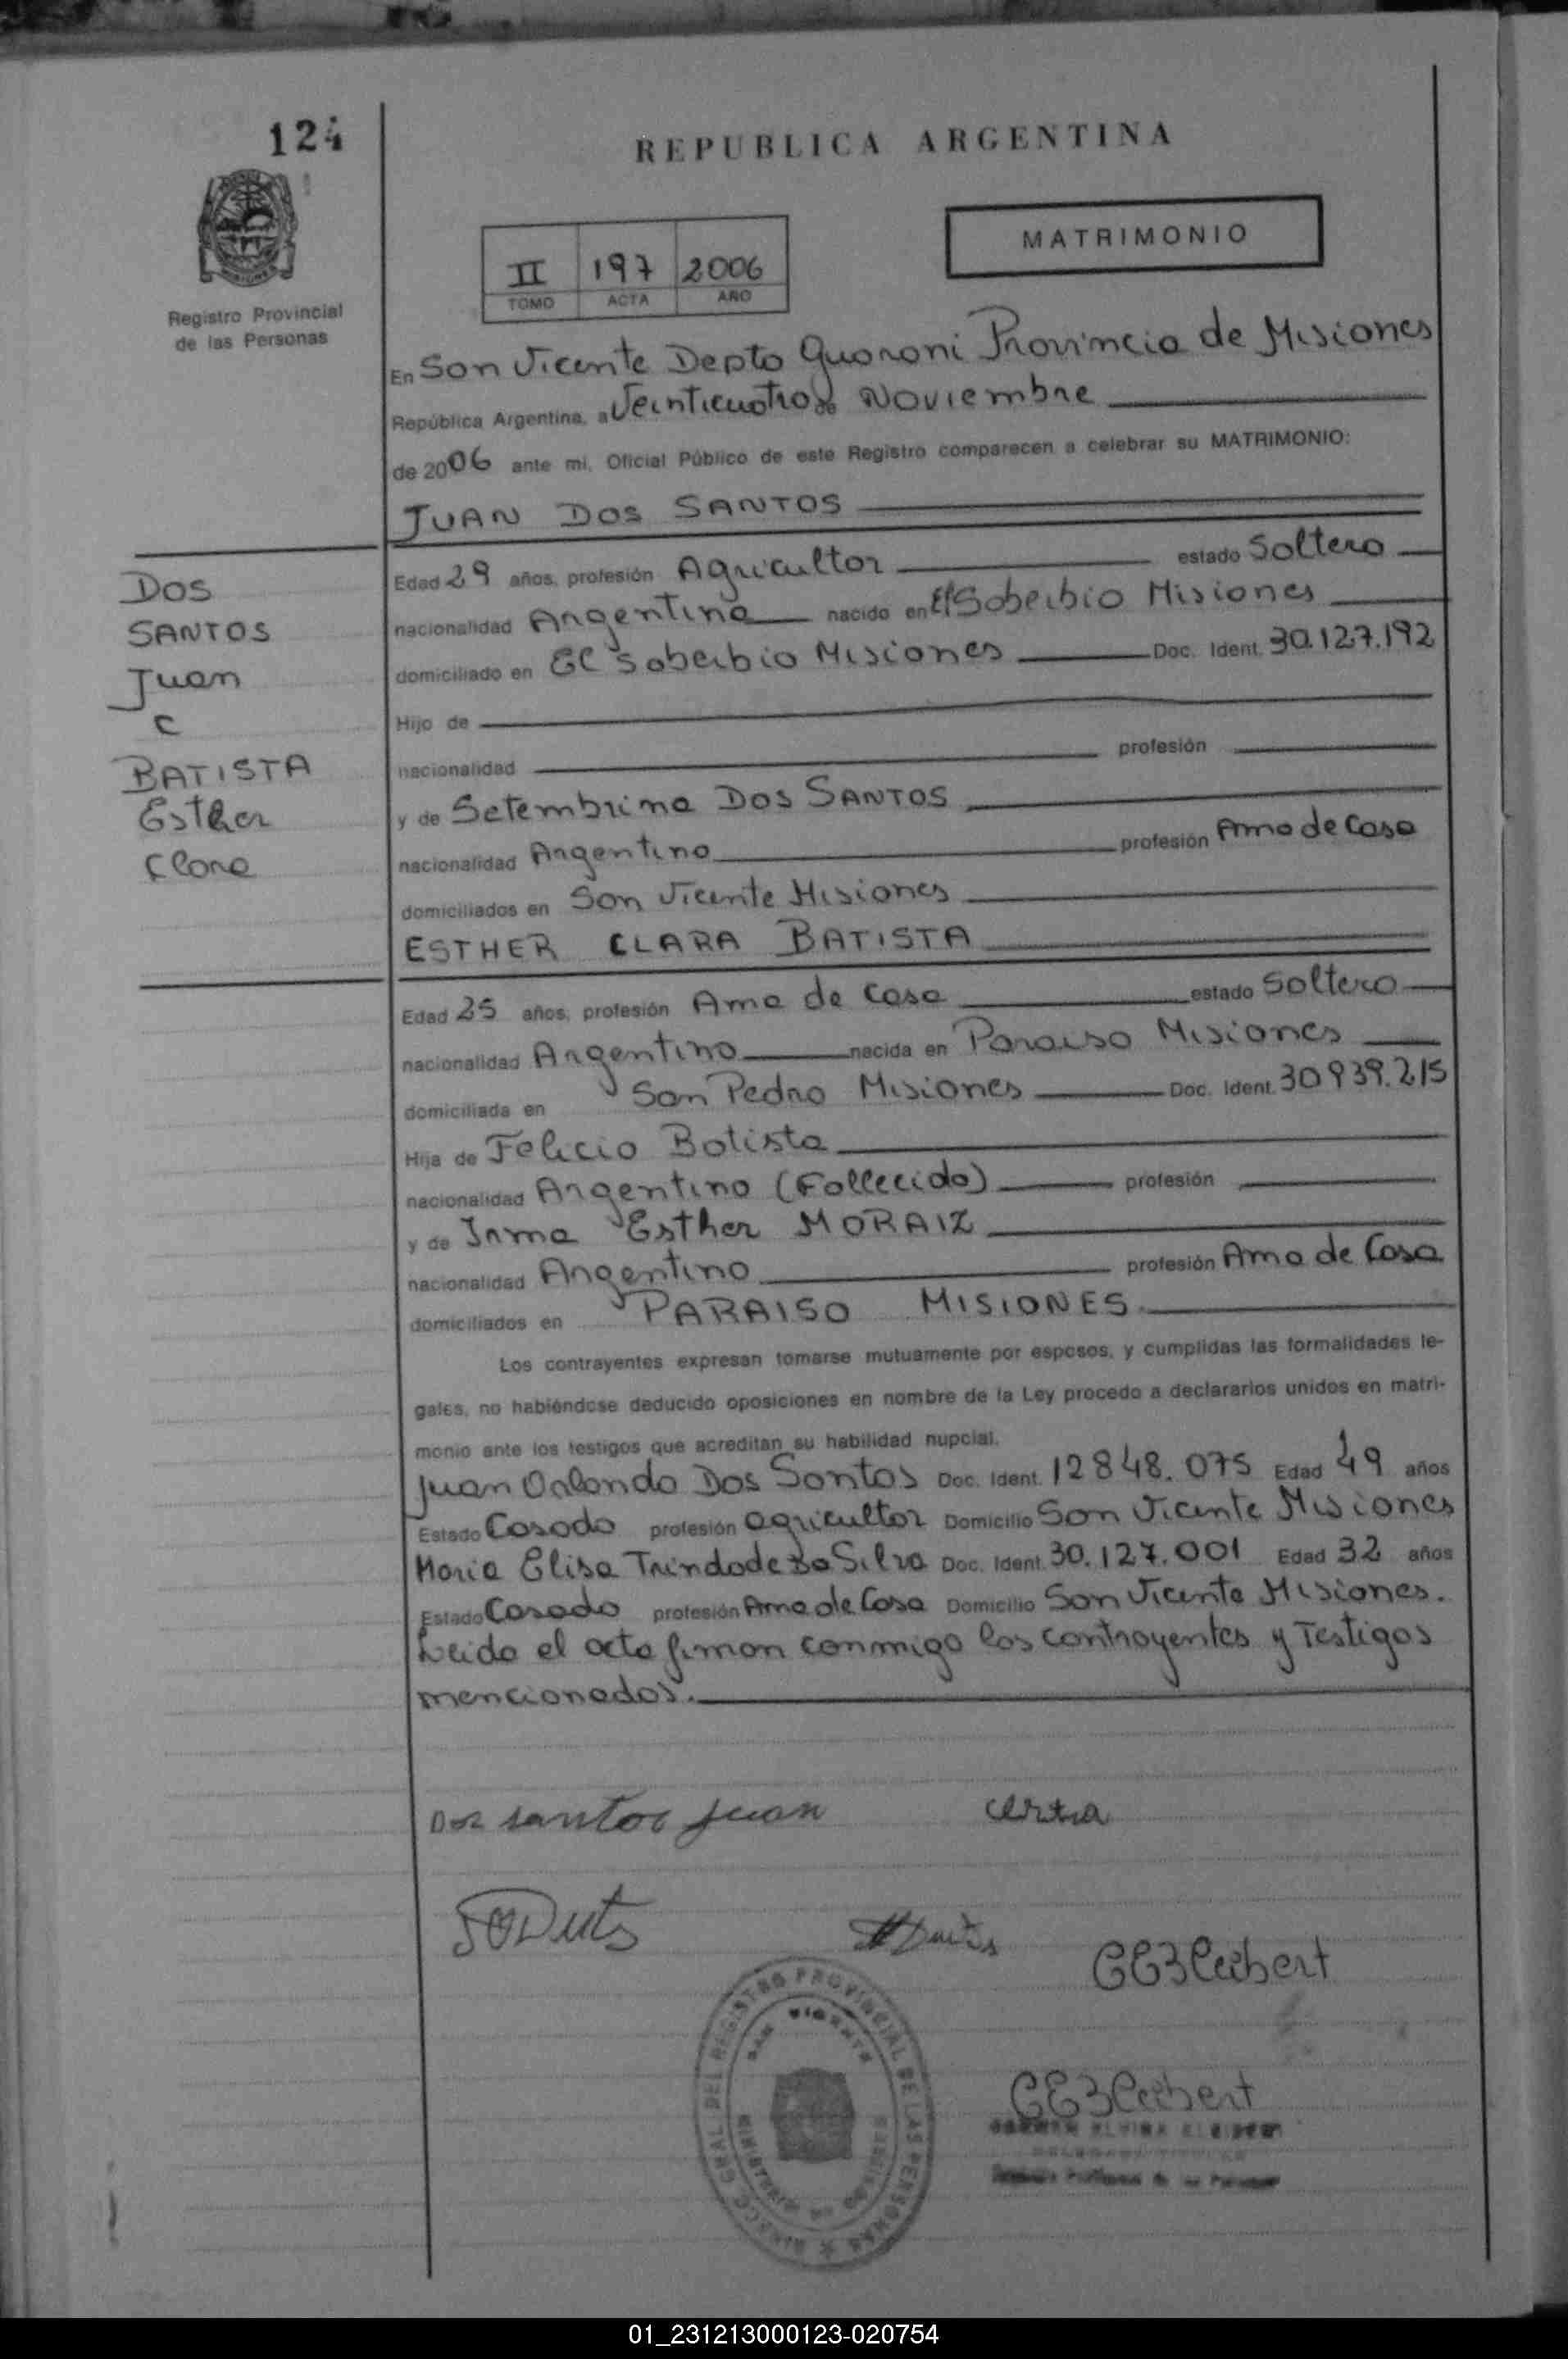 124
REPUBLICA ARGENTINA
Registro Provincial
de las Personas
II 197 2006
TOMO ACTA AÑO
MATRIMONIO
En San Vicente Depto Guaraní Provincia de Misiones
República Argentina, a Veinticuatro de Noviembre
de 2006 ante mi, Oficial Público de este Registro comparecen a celebrar su MATRIMONIO:
JUAN DOS SANTOS
Dos
SANTOS
Juan
c
BATISTA
Esther
Clara
Edad 29 años, profesión Agricultor estado Soltero
nacionalidad Argentina nacido en El Soberbio Misiones
domiciliado en El Soberbio Misiones Doc. Ident. 30.127.192
Hijo de
nacionalidad profesión
y de Setembrina Dos SANTOS
nacionalidad Argentina profesión Ama de Casa
domiciliados en San Vicente Misiones
ESTHER CLARA BATISTA
Edad 25 años, profesión Ama de Casa estado Soltera
nacionalidad Argentina nacida en Paraiso Misiones
domiciliada en San Pedro Misiones Doc. Ident. 30939.215
Hija de Felicio Batista
nacionalidad Argentino (Fallecido) profesión
y de Irma Esther MORAIZ
nacionalidad Argentina profesión Ama de Casa
domiciliados en PARAISO MISIONES.
Los contrayentes expresan tomarse mutuamente por esposos, y cumplidas las formalidades le-
gales, no habiéndose deducido oposiciones en nombre de la Ley procedo a declararlos unidos en matri-
monio ante los testigos que acreditan su habilidad nupcial.
Juan Orlando Dos Santos Doc. Ident. 12848.075 Edad 49 años
Estado Casado profesión agricultor Domicilio San Vicente Misiones
Maria Elisa Trindade Da Silva Doc. Ident. 30.127.001 Edad 32 años
Estado Casada profesión Ama de Casa Domicilio San Vicente Misiones.
Leida el acta firman conmigo los contrayentes y Testigos
mencionados.
Dos santos juan
REGISTRO PROVINCIAL DE LAS PERSONAS
SAN VICENTE
01_231213000123-020754